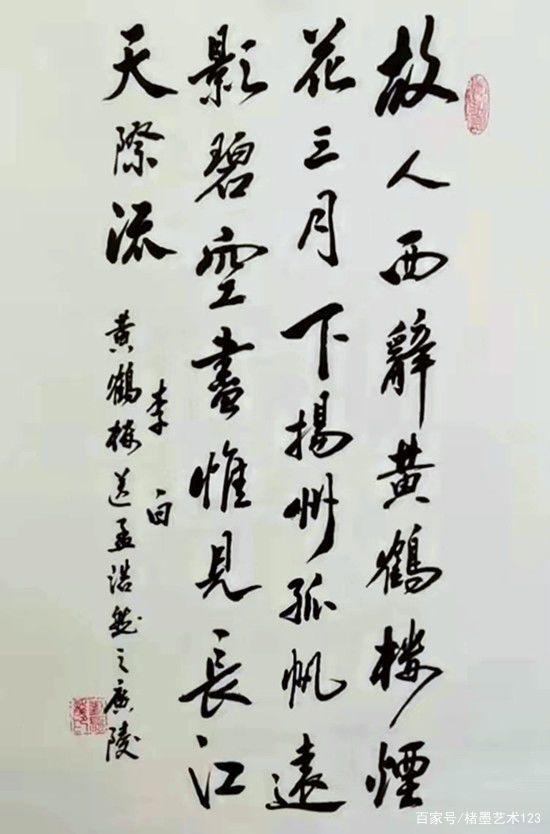 故人西辭黄鶴樓煙
花三月下揚州孤帆遠
影碧空盡惟見長江
天際流
李白
黄鶴樓送孟浩然之廣陵
百家号/楮墨艺术123